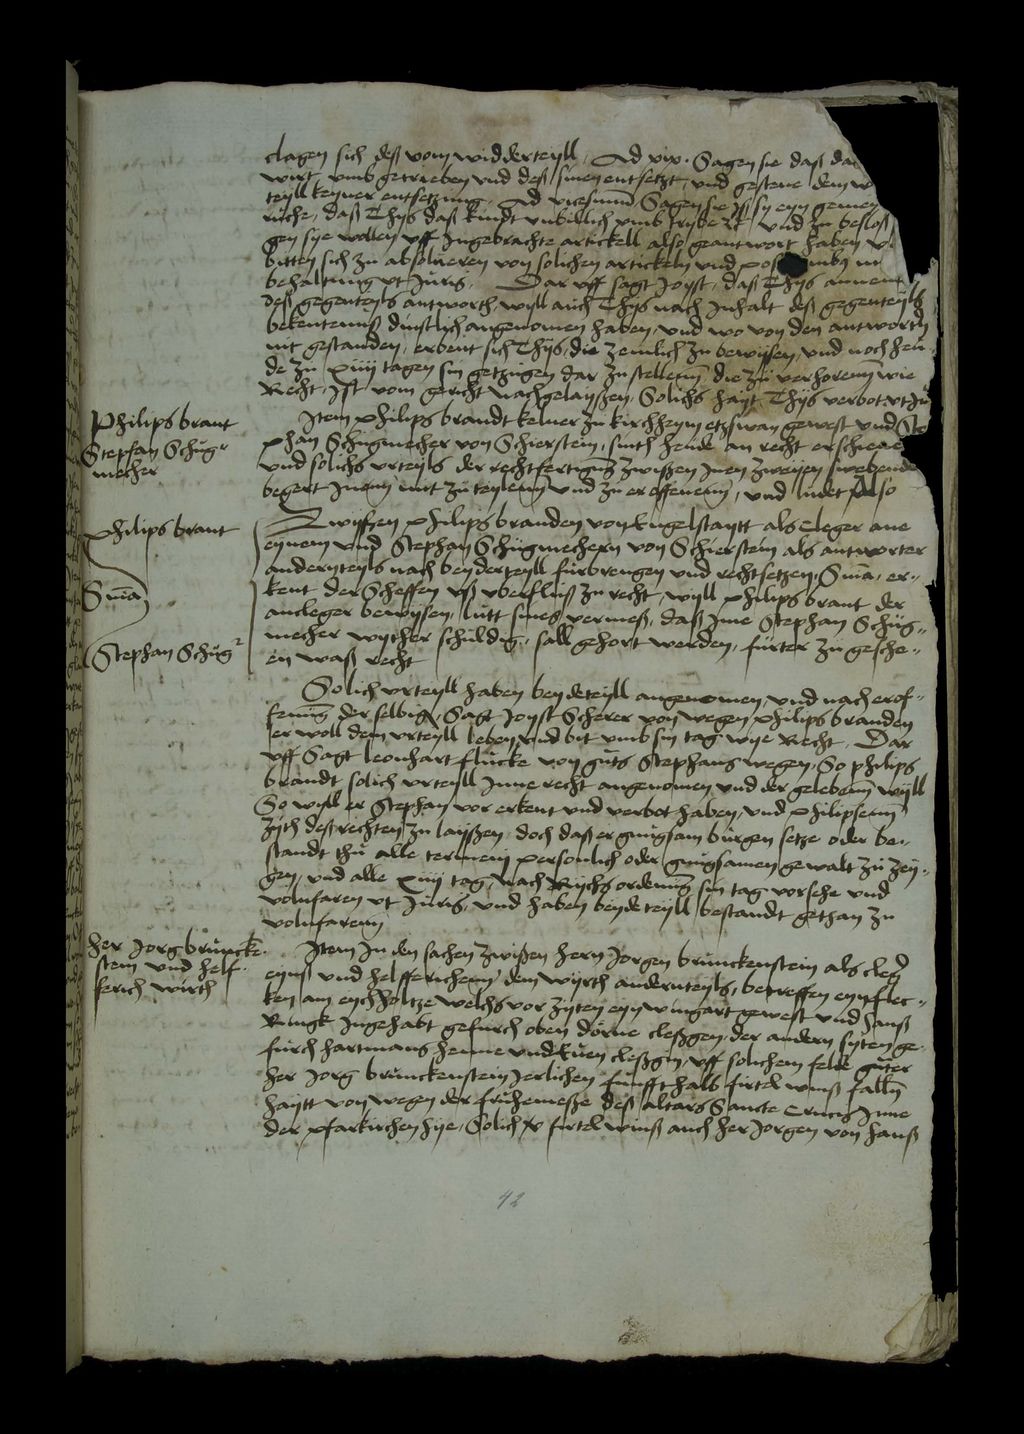 clagen sich deß vom widderteyll, Ad xix. Sagen sie daß da
wirt umb getrieben und deß sinen entsetzt, und gestene dem w
teyll keyner entsetzung, Ad vicesimum Sagen sie Jß sy eyn gemeyn
ruche, daß Thijs daß kindt unbillich umb trybe ꝛc und zu besloß
gen sye wollen uff Jngebrachte artickell also geantwort haben v
bitten sich zu absolueren von solichen artickeln und pos m
behaltnung ut Juris, Dar uff sagt Joyst, daß Thijs annem
deß gegenteyls antworth, wyll auch Thijs nach Jnhalt deß gegenteyls
bekentenuß dinstlich angenomen haben, und wo von den antworth
nit gestanden, erbeut sich Thijs, die zemlich zu bewysen, und noch heu
de zu xiiij tagen sin getzugen dar zu stellenn, die zu verhorenn wie
Recht, Jst vom gericht nachgelayßen, Solichs hayt Thijs verbot ut Ju
Philips brant
Stephan Schugmecher
Jtem Philips brandt kelner zu kirchheym etzwan gewest und Ste
phan Schugmecher von Schierstein, sinth hende an recht erschiene
und solichs urteyls der rechtfertigung zwißen Jnen zweyen swebende
begert Jnenn mit zu teylenn und zu eroffenenn, und ludet Also
Philips brant
Zwischen Philips branden von Engelstaytt als cleger ane
eynem und Stephan Schugmechern von Schierstein als antworter
anderteyls nach beyderteyll furbrengen und rechtsetzen, Snia, er-
Snia
kent der Scheffen uß uberfluß zu recht, wyll Philips brant der
ancleger bewysen, lutt sines vermeß, daß Jme Stephan Schug-
Stephan Schugr
mecher wyther schuldig, sall gehort werden, furter zu gesche-
en waß recht
Solich urteyll haben beydeteyll angenomen, und nach erof-
fenung der selbig, Sagt Joyst Scherer von wegen Philips branden
er woll dem urteyll leben und bit umb sin tag wye Recht, Dar
uff Sagt leonhart flucke von guts Stephans wegen, So philips
brandt solich urteyll Jnne recht angenomen und der gelebenn wyll
So wyll er Stephan vor erkent und verbot haben, und Philipsenn
zyth deß rechten zu layßen, doch daß er gnugsam burgen setze oder be-
standt thu alle termeni personlich oder gnugsamen gewalt zu zey-
gen, und alle xiiij tag, nach Rychs ordenung sin tag vorsehe und
volnfaren ut Juris, und haben beydeteyll bestandt gethan zu
volnfarenn
her Jorg bruncke-
stein und helf-
ferich wirth
Jtem Jn den sachen zwißen hern Jorgen brunckenstein als cleg
eynß und helfferichenn dem wyrth anderteyls, betreffen eyn flec-
ken am eychholtze welchs vor zyten eyn wingart gewest und hanß
Rungk Jngehabt gefurch oben dorne cleßgen, der andern syten ge-
furch hartmans henne und kuen cleßgin, uff solichem felde guter
her Jorg brunckenstein Jerlichen funffthalb firtel wins fallen
haytt von wegen der fruhemesße deß altars Sancte Crucis Jnne
der Pfarkirchen hye, Solich v firtel winß auch her Jorgen von hanß
42